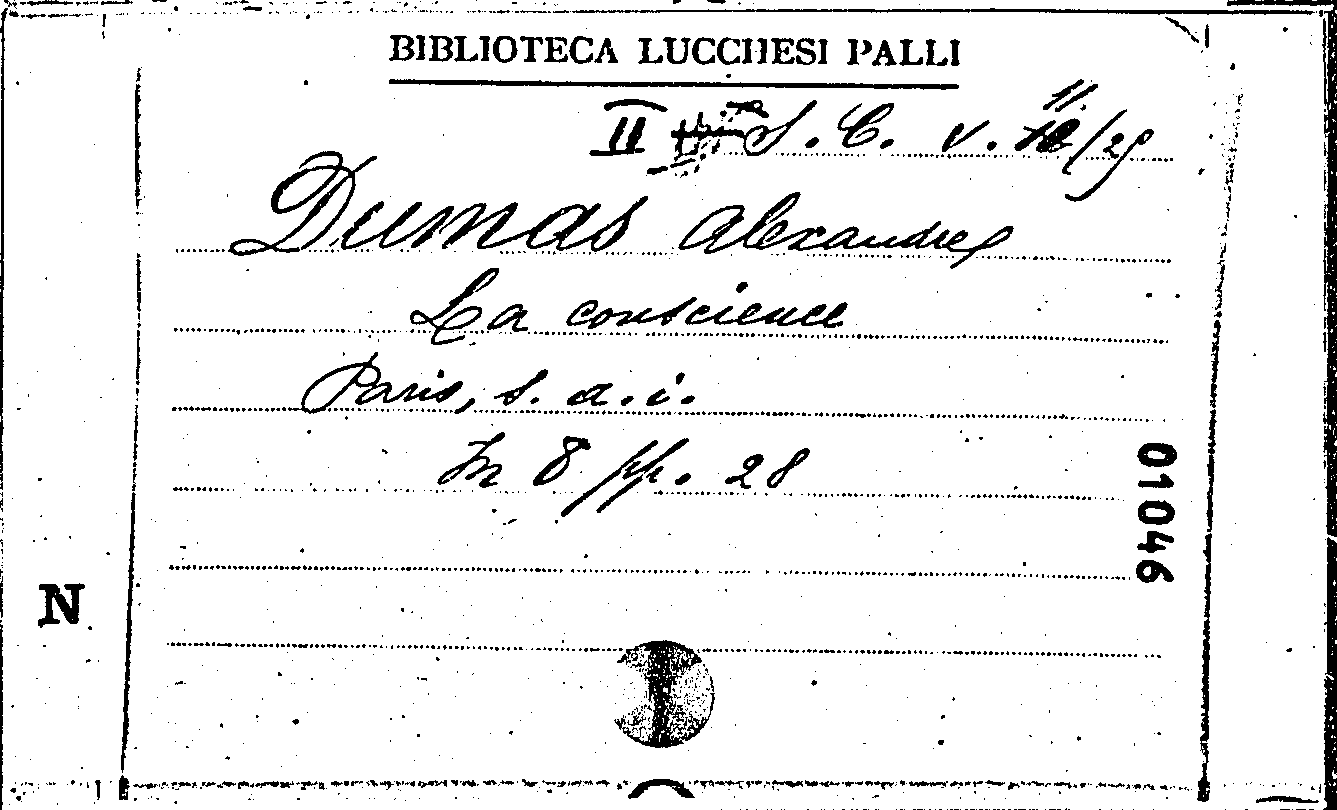 BIBLIOTECA LUCCHESI PALLI
II S. C. V. 11/29
Dumas Alexandre
La conscience
Paris, s. a. i.
In 8 pp. 28
01046
N